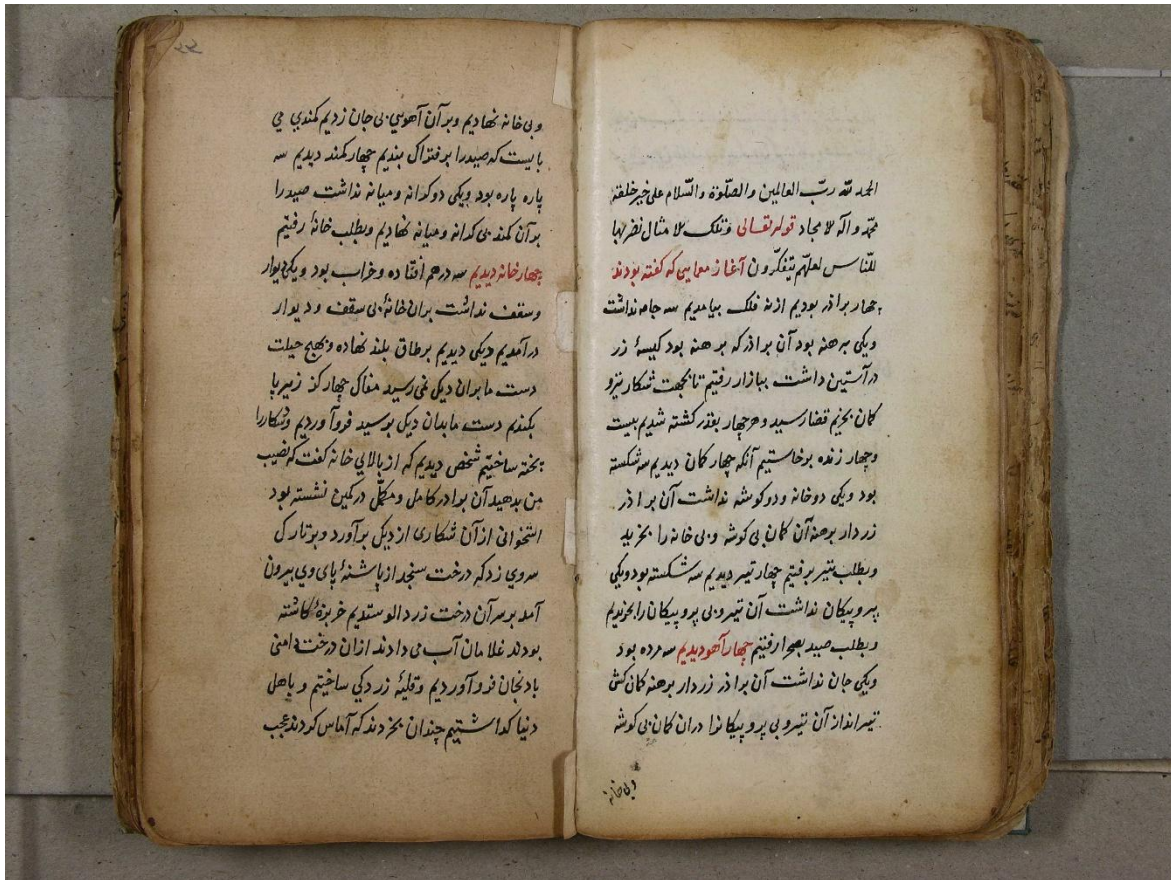 الحمد لله ربّ العالمین والصّلوة والسّلام علی خیر خلقه
محمّد وآله الامجاد قوله تعالی وتلک الامثال نضربها
للنّاس لعلهّم یتفکّرون آغاز معمایی که کفته بودند
چهار براذر بودیم ازنه فلک بیامدیم سه جامه نداشت
ویکی برهنه بود آن براذر که برهنه بود کیسهٔ زر
در آستین داشت ببازار رفتیم تا بجهت شکار تیرو
کمان بخیم قضا رسید و هرچهار بقدر کشته شدیم بیست
وچهار زنده برخاستیم آنکه چهار کمان دیدیم سه شکسته
بود ویکی دوخانه ودوکوشه نداشت آن براذر
زردار برهنه آن کمان بی کوشه وبی خانه را بخرید
وبطلب تیر برفتیم چهار تیر دیدیم سه شکسته بود ویکی
پر وپیکان نداشت آن تیر وبی پر وپیکان را بخریدیم
وبطلب صید بصحرا رفتیم چهار آهو دیدیم سه مرده بود
ویکی جان نداشت آن براذر زردار برهنه کمان کش
تیرانداز آن تیر وبی پر وپیکانرا دران کمان بی کوشه
وبی خانه
وبی خانه نهادیم وبر آن آهوی بی جان زدیم کمندی می
بایست که صیدرا بر فتراک بندیم چهار کمند دیدیم سه
پاره پاره بود ویکی دوکرانه ومیانه نداشت صیدرا
بر آن کمند بی کرانه ومیانه نهادیم وبطلب خانهٔ رفتیم
چهار خانه دیدیم سه درهم افتاده وخراب بود ویکی دیوار
وسقف نداشت بران خانهٔ بی سقف ودیوار
درآمدیم دیکی دیدیم بر طاق بلند نهاده وبهیج حیلت
دست ما بران دیک نمی رسید مغاک چهار کز زیر پا
بکندیم دست ما بدان دیک برسید فروآوردیم وشکاررا
پخته ساختیم شخص دیدیم که از بالای خانه کفت که نصیب
من بدهید آن برادر کامل ومکمّل در کمین نشسته بود
استخوانی از آن شکاری از دیک برآورد وبر تارک
سروی زد که درخت سنجد از پاشنهٔ پای وی بیرون
آمد بر سر آن درخت زردالو ستدیم خربزهٔ کاشته
بودند غلامان آب می دادند ازان درخت دامنی
بادنجان فرو آوردیم وقلیهٔ زردکی ساختیم و باهل
دنیا کداشتیم چندان بخردند که آماس کردند عجب